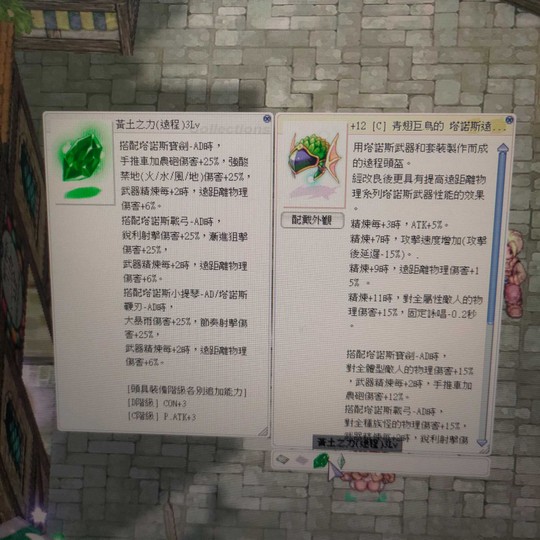 黃土之力(遠程)3Lv
搭配塔諾斯寶劍-AD時，
手推車加農砲傷害+25%，強酸
禁地(火/水/風/地)傷害+25%，
武器精煉每+2時，遠距離物理
傷害+6%。
搭配塔諾斯戰弓-AD時，
銳利射擊傷害+25%，漸進狙擊
傷害+25%，
武器精煉每+2時，遠距離物理
傷害+6%。
搭配塔諾斯小提琴-AD/塔諾斯
觀刃-AD時，
大暴雨傷害+25%，節奏射擊傷
害+25%，
武器精煉每+2時，遠距離物理
傷害+6%。
[頭具裝備階級各別追加能力]
[D階級] CON+3
[C階級] P.ATK+3
+12 [C] 青翅巨鳥的 塔諾斯遠...
用塔諾斯武器和套裝製作而成
的遠程頭盔。
經改良後更具有提高遠距離物
理系列塔諾斯武器性能的效果
。
配戴外觀
精煉每+3時，ATK+5%。
精煉+7時，攻擊速度增加(攻擊
後延遲-15%)。
精煉+9時，遠距離物理傷害+1
5%。
精煉+11時，對全屬性敵人的物
理傷害+15%，固定詠唱-0.2秒
。
搭配塔諾斯寶劍-AD時，
對全體型敵人的物理傷害+15%
，武器精煉每+2時，手推車加
農砲傷害+12%。
搭配塔諾斯戰弓-AD時，
對全種族怪的物理傷害+15%，
黃土之力(遠程)3Lv